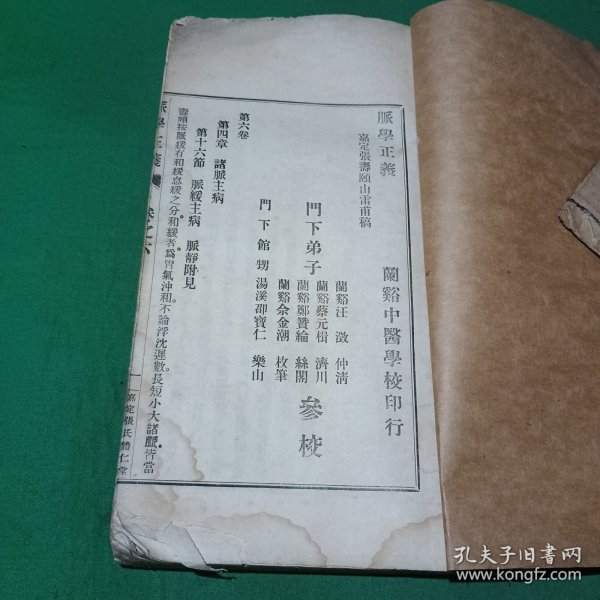 脈學正義
嘉定張壽頤山雷甫稿
蘭谿中醫學校印行
門下弟子
蘭谿汪 澂 仲清
蘭谿蔡元楫 濟川
蘭谿鄭贊綸 絲閣
蘭谿佘金潮 枚筆
參校
門下館甥 湯溪邵寶仁 樂山
第六卷
第四章 諸脈主病
第十六節 脈緩主病 脈靜附見
壽頤按脈緩有和緩怠緩之分和緩者爲胃氣沖和不論浮沈遲數長短小大諸脈皆當
脈學正義
卷之六
一
嘉定張氏體仁堂
孔夫子旧书网
www.kongfz.com